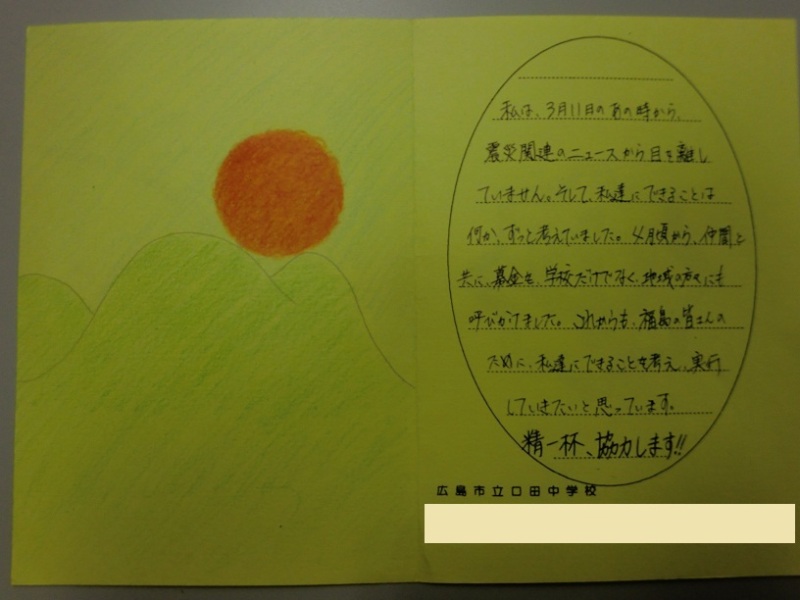 私は、3月11日のあの時から、
震災関連のニュースから目を離し
ていません。そして、私達にできることは
何か、ずっと考えていました。4月頃から、仲間と
共に、募金を、学校だけでなく、地域の方々にも
呼びかけました。これからも、福島の皆さんの
ために、私達にできることを考え、実行
していきたいと思っています。
精一杯、協力します!!
広島市立口田中学校